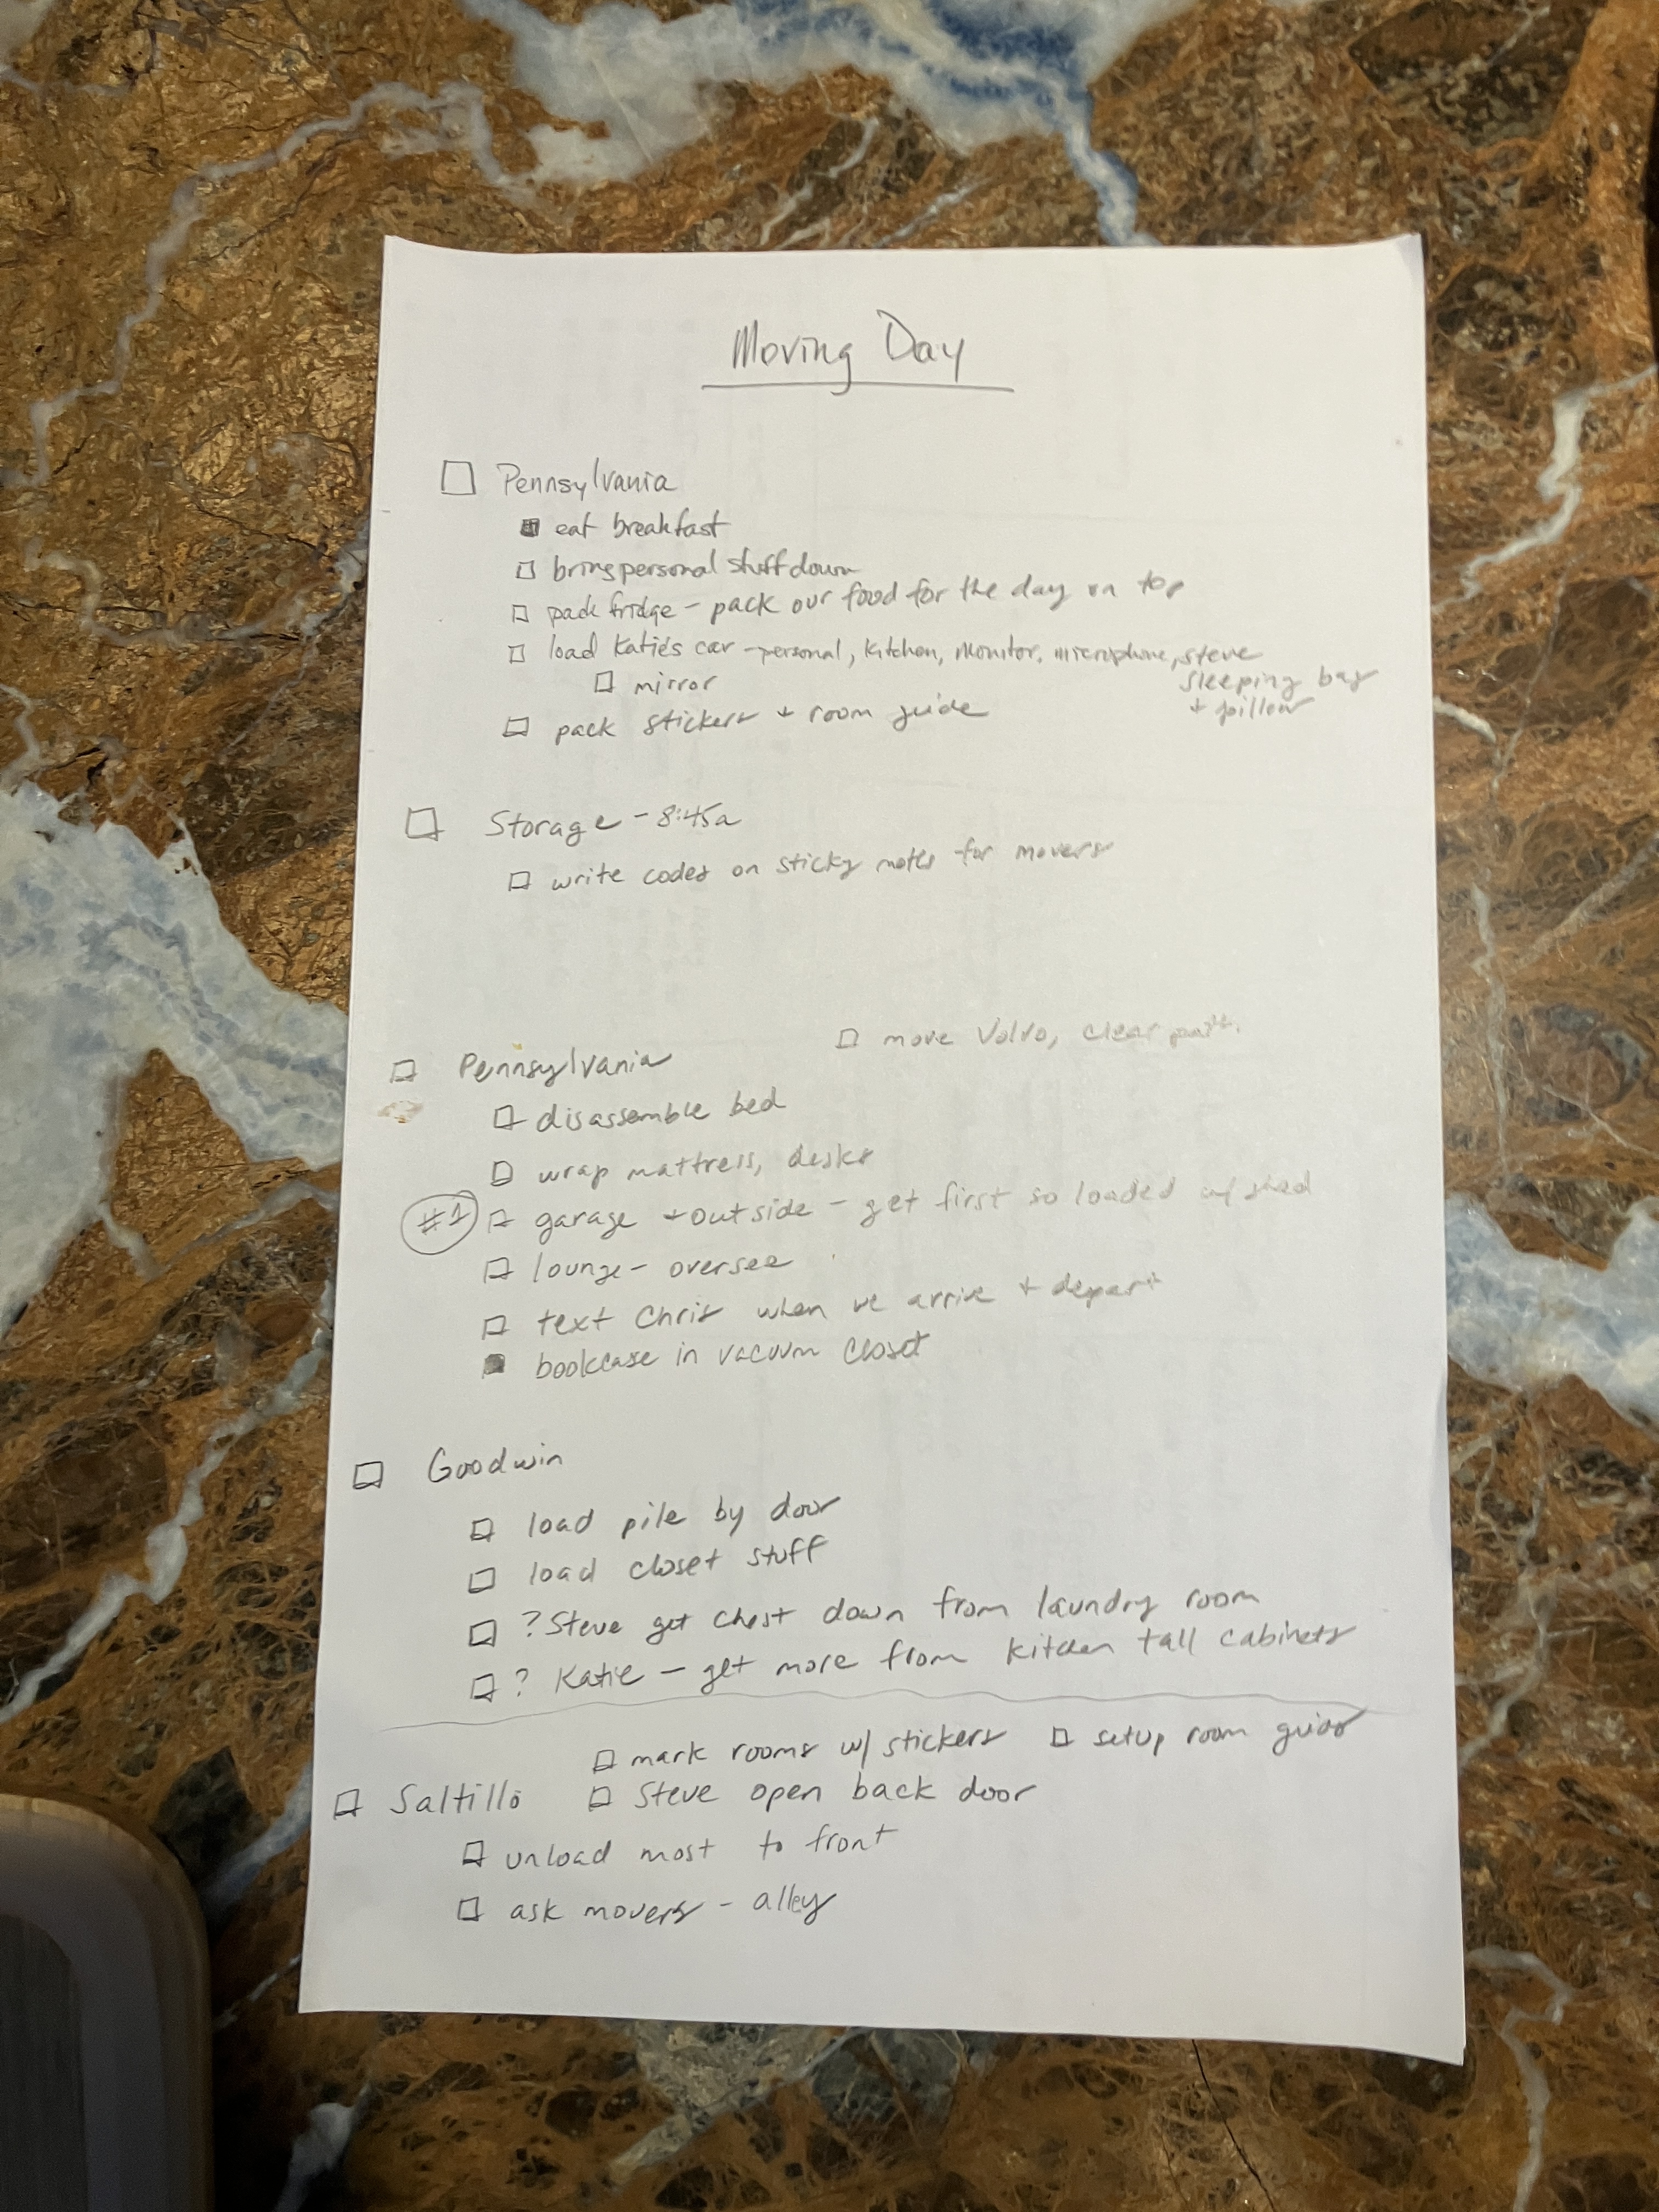 Moving Day
☐ Pennsylvania
■ eat breakfast
☐ bring personal stuff down
☐ pack fridge - pack our food for the day on top
☐ load Katie's car - personal, kitchen, monitor, microphone, steve
sleeping bag
☐ mirror
+ pillow
☐ pack stickers + room guide
☐ Storage - 8:45a
☐ write codes on sticky notes for movers
☐ move Volvo, clear path.
☐ Pennsylvania
☐ disassemble bed
☐ wrap mattress, desks
#1 ☐ garage + outside - get first so loaded w/ shed
☐ lounge - oversee
☐ text Chris when we arrive + depart
■ bookcase in vacuum closet
☐ Goodwin
☐ load pile by door
☐ load closet stuff
☐ ? Steve get chest down from laundry room
☐ ? Katie - get more from kitchen tall cabinets
☐ mark rooms w/ stickers ☐ setup room guide
☐ Saltillo ☐ Steve open back door
☐ unload most to front
☐ ask movers - alley